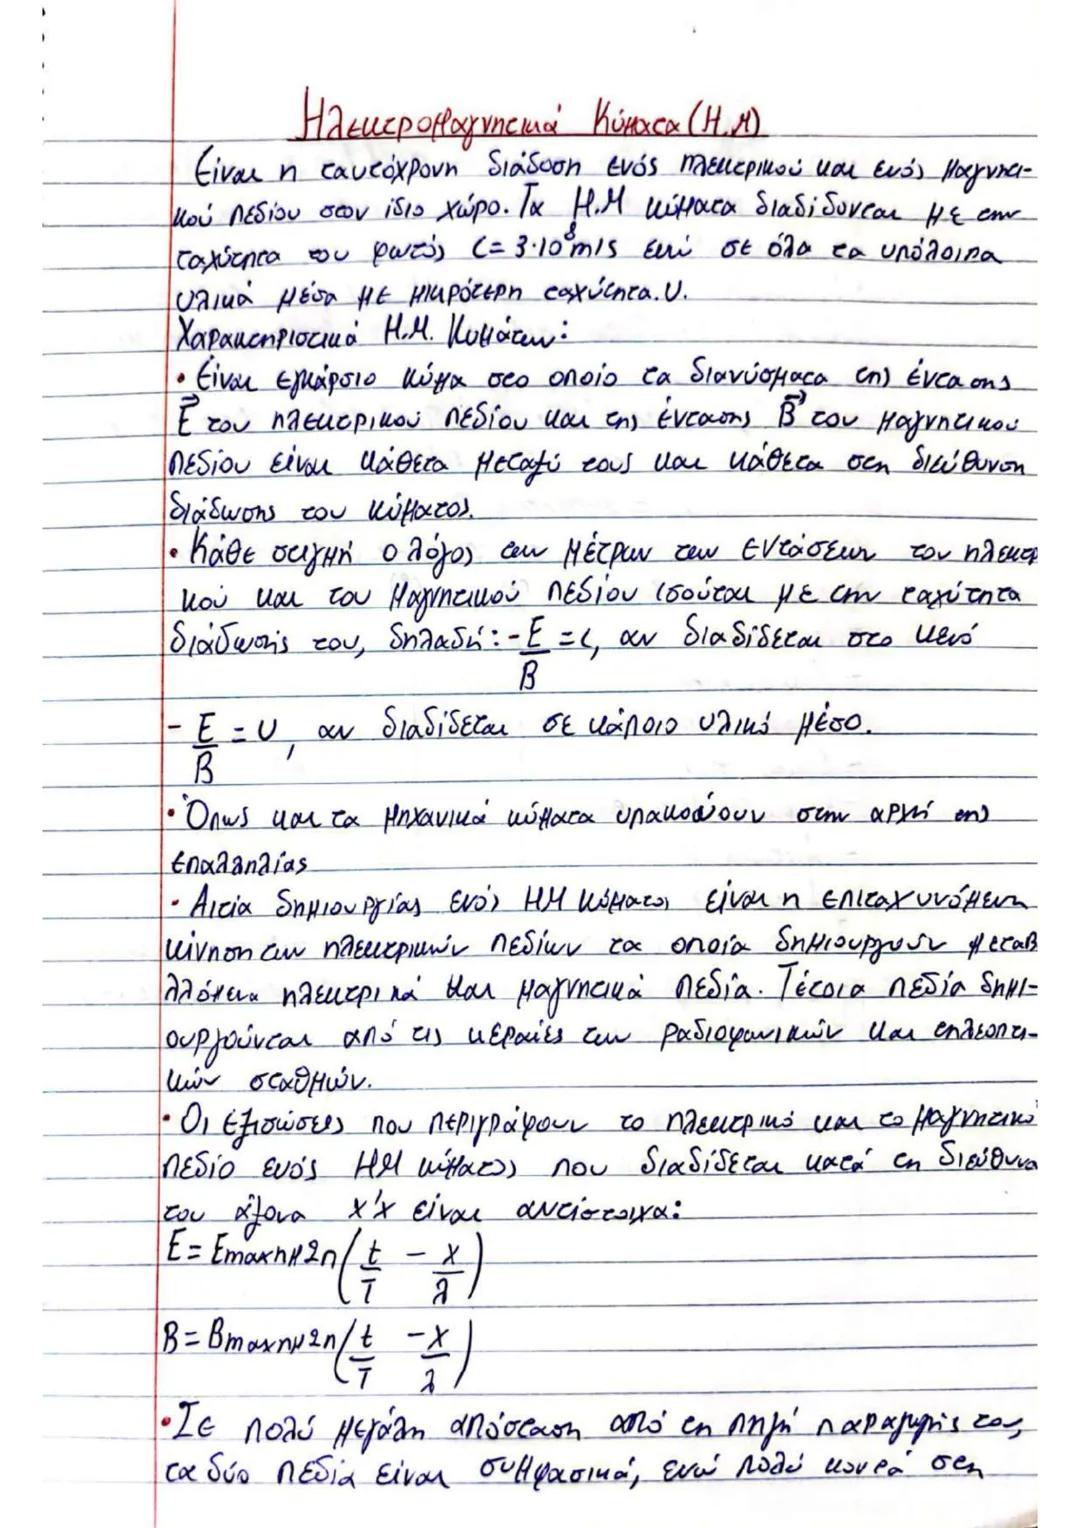 Ηλεκτρομαγνητικά Κύματα (Η.Μ)
Είναι η ταυτόχρονη διάδοση ενός ηλεκτρικού και ενός μαγνητι-
κού πεδίου στον ίδιο χώρο. Τα Η.Μ κύματα διαδίδονται με την
ταχύτητα του φωτός C = 3·10⁸m/s ενώ σε όλα τα υπόλοιπα
υλικά μέσα με μικρότερη ταχύτητα. υ.
Χαρακτηριστικά Η.Μ. Κυμάτων:
• Είναι εγκάρσιο κύμα στο οποίο τα διανύσματα της έντασης
E⃗ του ηλεκτρικού πεδίου και της έντασης B⃗ του μαγνητικού
πεδίου είναι κάθετα μεταξύ τους και κάθετα στη διεύθυνση
διάδωσης του κύματος.
• Κάθε στιγμή ο λόγος των μέτρων των εντάσεων του ηλεκτρ
κού και του μαγνητικού πεδίου ισούται με την ταχύτητα
διάδωσής του, δηλαδή: - E/B = c, αν διαδίδεται στο κενό
- E/B = υ, αν διαδίδεται σε κάποιο υλικό μέσο.
• Όπως και τα μηχανικά κύματα υπακούουν στην αρχή της
επαλληλίας
• Αιτία δημιουργίας ενός ΗΜ κύματος είναι η επιταχυνόμενη
κίνηση των ηλεκτρικών πεδίων τα οποία δημιουργούν μεταβ
λλόμενα ηλεκτρικά και μαγνητικά πεδία. Τέτοια πεδία δημι-
ουργούνται από τις κεραίες των ραδιοφωνικών και τηλεοπτι-
κών σταθμών.
• Οι εξισώσεις που περιγράφουν το ηλεκτρικό και το μαγνητικό
πεδίο ενός ΗΜ κύματος που διαδίδεται κατά τη διεύθυνση
του άξονα x'x είναι αντίστοιχα:
E = Emaxημ2π(t/T - x/λ)
B = Bmaxημ2π(t/T - x/λ)
• Σε πολύ μεγάλη απόσταση από τη πηγή παραγωγής του,
τα δύο πεδία είναι συμφασικά, ενώ πολύ κοντά στη